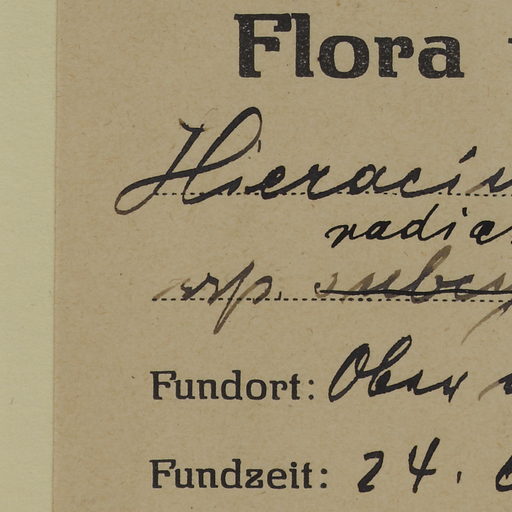 Flora
Hieraciu
radic
ssp. subcy
Fundort: Ober
Fundzeit: 24.